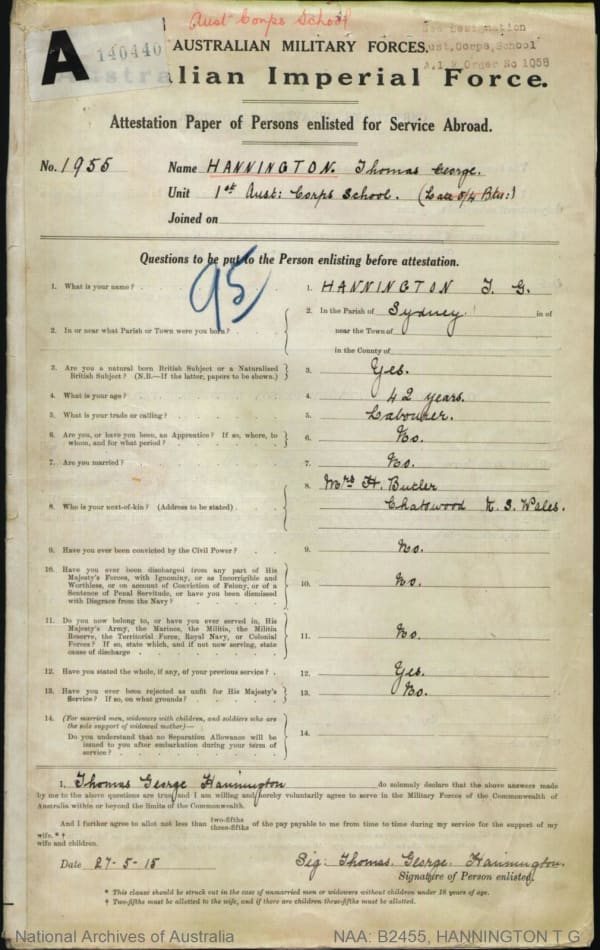 Aust Corps School
A 140440
See Designation
AUSTRALIAN MILITARY FORCES.
Aust. Corps. School
A.I.F. Order No 1058
Australian Imperial Force.
Attestation Paper of Persons enlisted for Service Abroad.
No. 1955 Name HANNINGTON. Thomas George.
Unit 1st Aust: Corps School. (Late 5/4 Btn:)
Joined on
Questions to be put to the Person enlisting before attestation.
95
1. What is your name? 1. HANNINGTON T. G.
2. In or near what Parish or Town were you born? 2. In the Parish of Sydney in or
near the Town of
in the County of
3. Are you a natural born British Subject or a Naturalised
British Subject? (N.B.—If the latter, papers to be shown.) 3. Yes.
4. What is your age? 4. 42 years.
5. What is your trade or calling? 5. Labourer.
6. Are you, or have you been, an Apprentice? If so, where, to
whom, and for what period? 6. No.
7. Are you married? 7. No.
8. Who is your next-of-kin? (Address to be stated) 8. Mrs H. Butler
Chatswood N. S. Wales.
9. Have you ever been convicted by the Civil Power? 9. No.
10. Have you ever been discharged from any part of His
Majesty's Forces, with Ignominy, or as Incorrigible and
Worthless, or on account of Conviction of Felony, or of a
Sentence of Penal Servitude, or have you been dismissed
with Disgrace from the Navy? 10. No.
11. Do you now belong to, or have you ever served in, His
Majesty's Army, the Marines, the Militia, the Militia
Reserve, the Territorial Force, Royal Navy, or Colonial
Forces? If so, state which, and if not now serving, state
cause of discharge 11. No.
12. Have you stated the whole, if any, of your previous service? 12. Yes.
13. Have you ever been rejected as unfit for His Majesty's
Service? If so, on what grounds? 13. No.
14. (For married men, widowers with children, and soldiers who are
the sole support of widowed mother)—
Do you understand that no Separation Allowance will be
issued to you after embarkation during your term of
service? 14.
I, Thomas George Hannington do solemnly declare that the above answers made
by me to the above questions are true, and I am willing and hereby voluntarily agree to serve in the Military Forces of the Commonwealth of
Australia within or beyond the limits of the Commonwealth.
And I further agree to allot not less than two-fifths three-fifths of the pay payable to me from time to time during my service for the support of my
wife.*†
wife and children.
Date 27-5-15 Sig: Thomas. George. Hannington.
Signature of Person enlisted.
* This clause should be struck out in the case of unmarried men or widowers without children under 18 years of age.
† Two-fifths must be allotted to the wife, and if there are children three-fifths must be allotted.
National Archives of Australia NAA: B2455, HANNINGTON T G